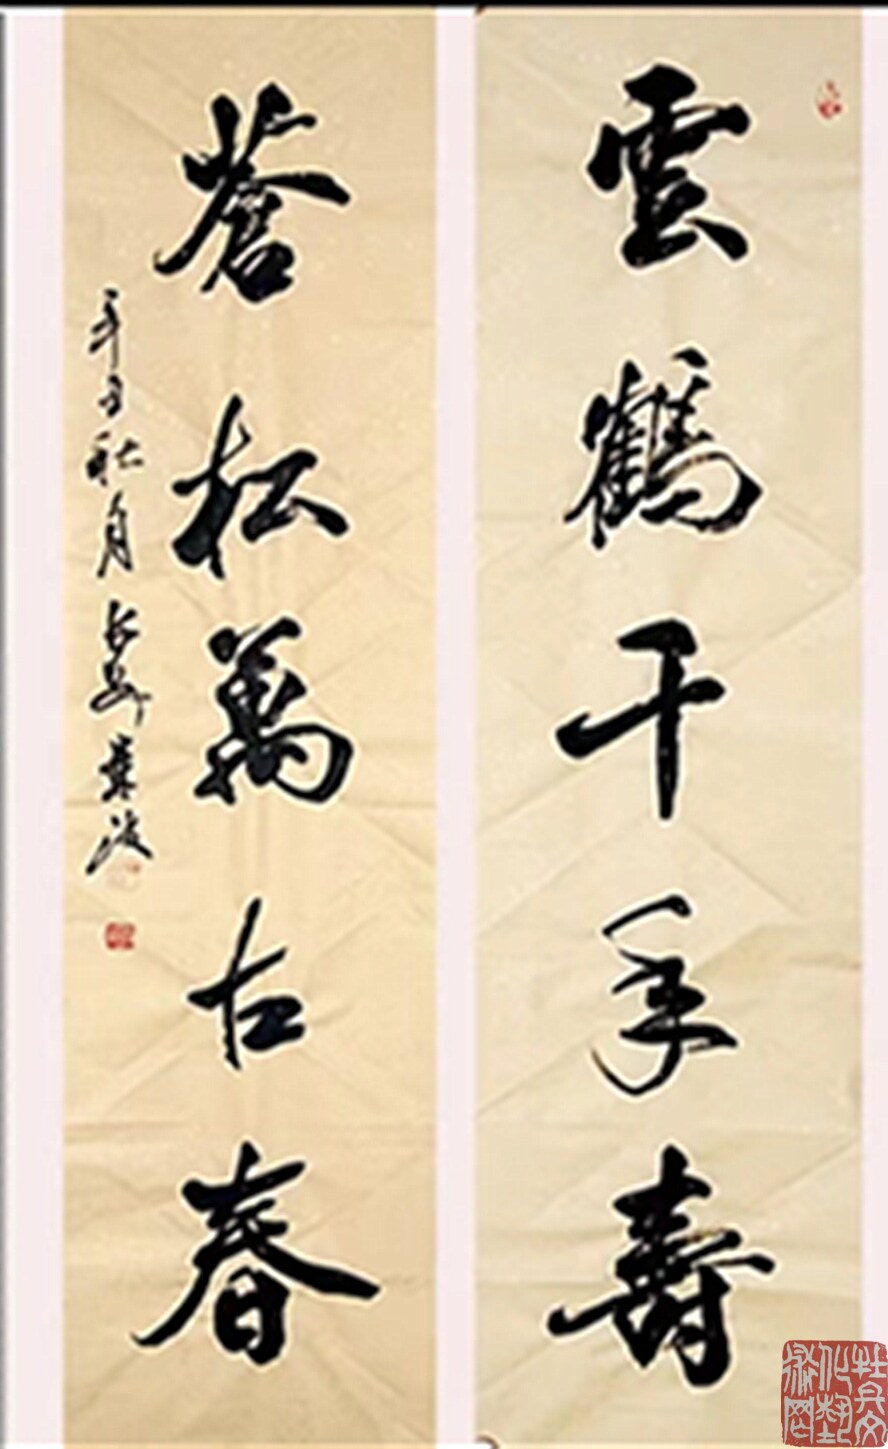 雲鶴千年壽
蒼松萬古春
辛丑秋月